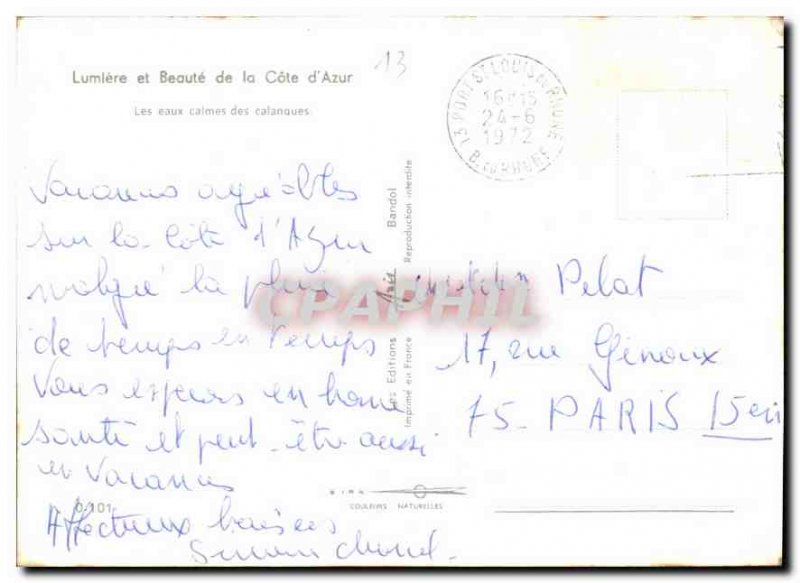 Lumière et Beauté de la Côte d'Azur
Les eaux calmes des calanques
13
13 PORT ST LOUIS DU RHONE
16H15
24-6
1972
B. DU RHONE
Vacances agréables
sur la Côte d'Azur
malgré la pluie
de temps en temps
Vous espérons en bonne
santé et peut-être aussi
en vacances
Affectueux baisers
Editions Bandol
Imprimé en France Reproduction interdite
Pelat
17, rue
75 - PARIS 15em
0.101
COULEURS NATURELLES
CPAPHIL